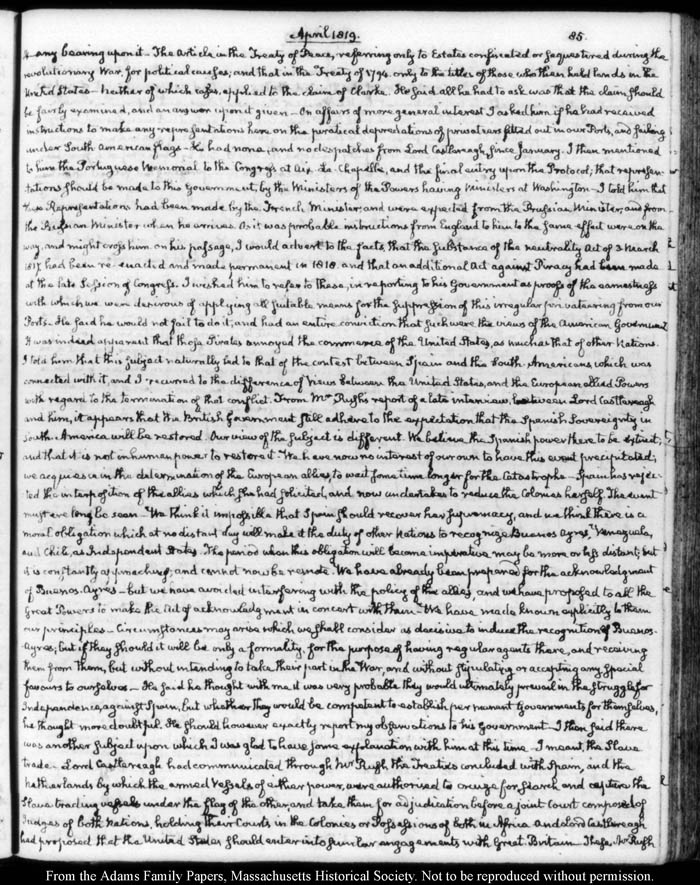 April 1819.
85.
any bearing upon it— The Article in the Treaty of Peace, referring only to Estates confiscated or sequestered during the
revolutionary War, for political causes; and that in the Treaty of 1794. only to the titles of those who then held lands in the
United States— Neither of which cases, applied to the claim of Clarke. He said all he had to ask was that the claim should
be fairly examined, and an answer upon it given— On affairs of more general interest I asked him if he had received
instructions to make any representations here on the piratical depredations of privateers fitted out in our Ports, and sailing
under South American flags— He had none; and no despatches from Lord Castlereagh, since January. I then mentioned
to him the Portuguese Memorial to the Congress at Aix. La. Chapelle, and the final entry upon the Protocol; that represen-
tations should be made to this Government, by the Ministers of the Powers having Ministers at Washington— I told him that
these Representations had been made by the French Minister, and were expected from the Prussian Minister, and from
the Russian Minister when he arrives. As it was probable instructions from England to him to the same effect were on the
way, and might cross him on his passage, I would advert to the facts, that the substance of the neutrality Act of 3 March
1817 had been re-enacted and made permanent in 1818. and that an additional Act against Piracy had been made
at the late Session of Congress. I wished him to refer to these, in reporting to his Government as proofs of the earnestness
with which we were desirous of applying all suitable means for the suppression of this irregular privateering from our
Ports— He said he would not fail to do it, and had an entire conviction that such were the views of the American Government
It was indeed apparent that those Pirates annoyed the commerce of the United States, as much as that of other Nations.
I told him that this subject naturally led to that of the contest between Spain and the South Americans which was
connected with it, and I recurred to the difference of views between the United States, and the European allied Powers
with regard to the termination of that conflict. From Mr Rush's report of a late interview, between Lord Castlereagh
and him, it appears that the British Government still adhere to the expectation that the Spanish Sovereignty in
South. America will be restored. Our view of the subject is different. We believe the Spanish power there to be extinct,
and that it is not in human power to restore it. We have now no interest of our own to have this event precipitated;
we acquiesce in the determination of the European allies, to wait some time longer for the Catastrophe— Spain has rejec-
ted the interposition of the allies which she had solicited, and now undertakes to reduce the Colonies herself. The event
must ere long be seen. We think it impossible that Spain should recover her supremacy, and we think there is a
moral obligation which at no distant day will make it the duty of other Nations to recognize Buenos Ayres, Venezuela,
and Chili, as Independent States. The period when this obligation will become imperative may be more or less distant; but
it is constantly approaching, and cannot now be remote. We have already been prepared for the acknowledgment
of Buenos. Ayres— but we have avoided interfering with the policy of the allies, and we have proposed to all the
Great Powers to make the Act of acknowledgment in concert with them— We have made known explicitly to them
our principles— Circumstances may arise which we shall consider as decisive to induce the recognition of Buenos-
Ayres; but if they should it will be only a formality, for the purpose of having regular agents there, and receiving
them from them, but without intending to take their part in the War, and without stipulating or accepting any special
favours to ourselves— He said he thought with me it was very probable they would ultimately prevail in the struggle for
Independence, against Spain; but whether they would be competent to establish permanent Governments for themselves,
he thought more doubtful. He should however exactly report my observations to his Government— I then said there
was another subject upon which I was glad to have some explanation with him at this time— I meant, the Slave
trade— Lord Castlereagh had communicated through Mr Rush the Treaties concluded with Spain, and the
Netherlands by which the armed vessels of either power, were authorised to cruize for, search and capture the
Slave trading vessels under the flag of the other, and take them for adjudication before a joint court composed of
Judges of both Nations, holding their Courts in the Colonies or Possessions of both in Africa and Lord Castlereagh
had proposed that the United States should enter into similar engagements with Great Britain— These, Mr Rush
From the Adams Family Papers, Massachusetts Historical Society. Not to be reproduced without permission.